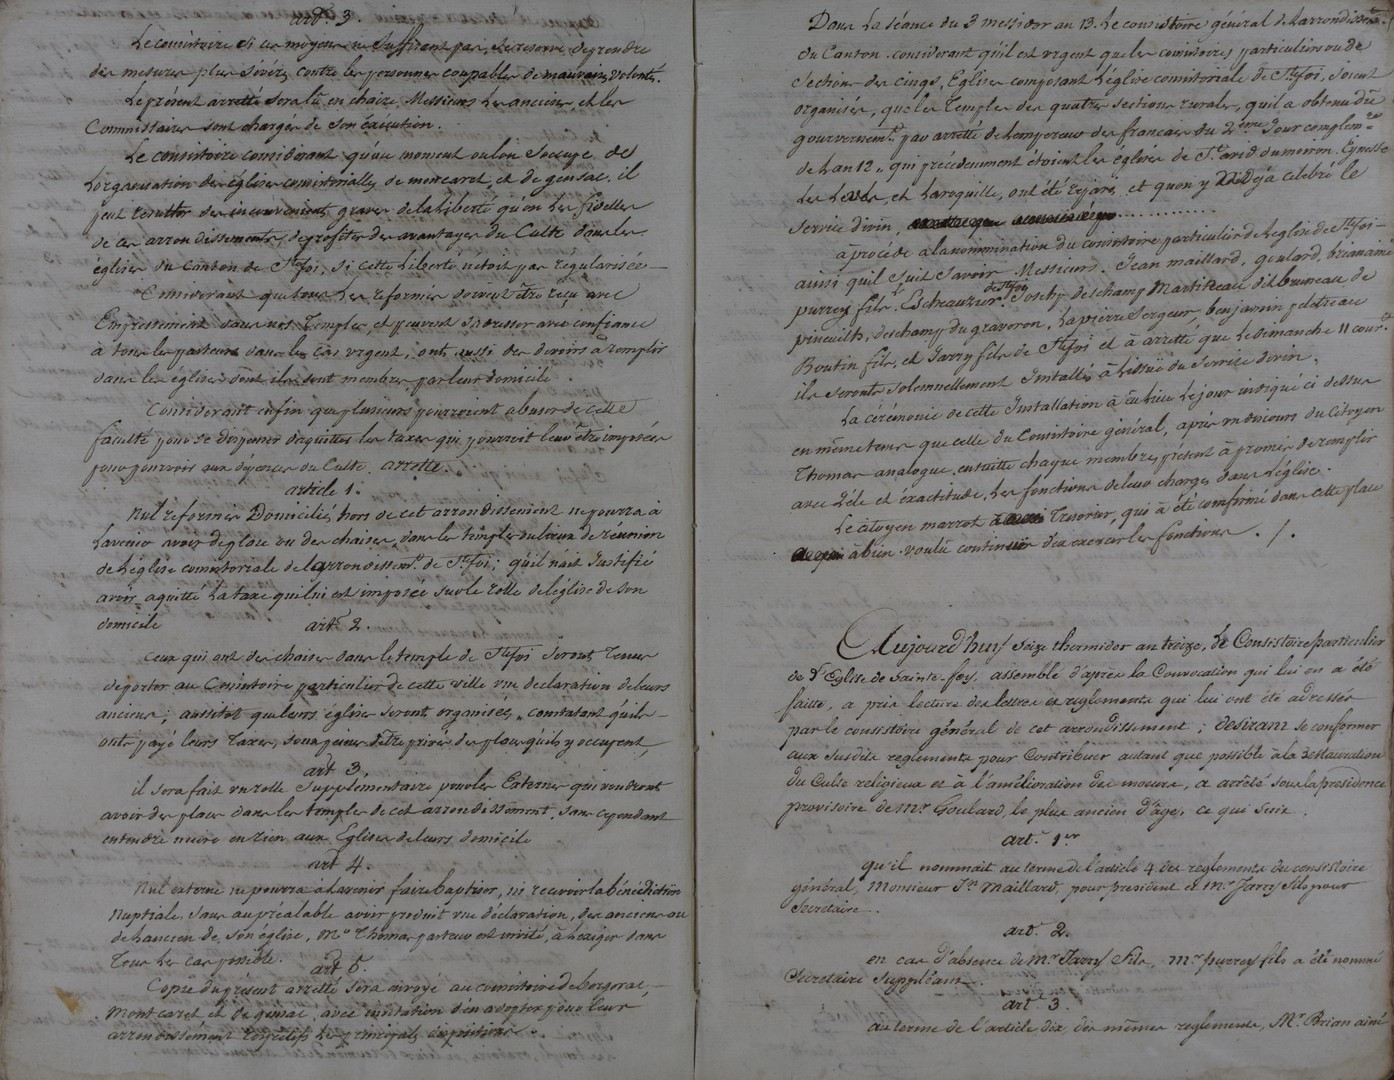 artᵉ. 3.
Le consistoire si ces moyens ne suffisent pas, se reserve de prendre
des mesures plus sévères contre les personnes coupables de mauvaise volonté.
Le présent arretté sera lû en chaire, Messieurs Les anciens, et les
Commissaires sont chargés de son éxécution.
Le consistoire considerant qu'au moment ou l'on s'occupe de
L'organisation des églises consistorialles de moncaret, et de gensac. il
peut resulter des inconvenients graves de la liberté qu'on les fidelles
de ces arrondissements, de profiter des avantages du Culte dans les
églises du Canton de Sᵗᵉ foi, si cette Liberté n'étoit pas régularisée
Considerant que tous Les reformés doivent être reçus avec
Empressement dans nos Temples, et peuvent s'adresser avec confiance
à tous les pasteurs dans les cas urgent, ont aussi des devoirs à remplir
dans les églises dont ils sont membres par leur domicile.
Considerant enfin que plusieurs pourroient abuser de cette
faculté pour se dispenser d'aquitter les taxes qui pourroit leur être imposées
pour pourvoir aux dépenses du Culte. arrette.
article 1.
Nul réformés Domiciliés hors de cet arrondissement ne pourra à
L'avenir avoir de place ou des chaises, dans les temples ou lieux de réunion
de L'église consistoriale de L'arrondissemᵗ. de Sᵗᵉ foi; qu'il n'ait justifié
avoir aquitté La taxe qui lui est imposée sur le rolle de l'église de son
domicile
artᵉ 2.
Ceux qui ont des chaises dans le temple de Sᵗᵉ foi seront Tenus
de porter au Consistoire particulier de cette ville une declaration de leurs
anciens; aussitot que leurs églises seront organisées, constatant qu'ils
ont payé leurs Taxes, sous peine d'être privés des places qu'ils y occupent,
art 3.
il sera fait un rolle Supplementaire pour les Externes qui voudront
avoir des places dans les temples de cet arrondissement, sans cependant
entendre nuire en rien aux Eglises de leurs domicile
art 4.
Nul externe ne pourra à L'avenir faire baptiser, ni recevoir la bénédiction
Nuptiale, sans au préalable avoir produit une déclaration, des anciens ou
de L'ancien de son église, Mʳ Thomas pasteur est invité, à L'exiger dans
Tous Les cas possible.
art 5.
Copie du présent arretté sera envoyé au consistoire de bergerac,
Montcaret et de gensac, avec invitation d'en adopter pour leur
arrondissement respectifs Les principales dispositions.
Dans La séance du 3 messidor an 13. Le consistoire général de L'arrondissemᵗ
du Canton. considerant qu'il est urgent que les consistoires particuliers ou de
Section des cinqs Eglises composant L'église consistoriale de Sᵗᵉ foi, soient
organisés, que les Temples des quatre sections rurales, qu'il a obtenu du
gouvernemᵗ par arretté de L'empereur des francais du 2ᵉᵐᵉ jour complemʳᵉ
de L'an 12, qui précédemment étoient les églises de Sᵗ avid du moiron, Eynesse
Les Leves, et Laroquille, ont été réparé, et qu'on y a déja célebré le
Service divin,
à procédé à la nommination du consistoire particulier de L'eglise de Sᵗᵉ foi
ainsi qu'il suit Savoir Messieurs. Jean maillard, goulard, brian ainé
purrey fils, Eschauzier de Sᵗᵉ foi, Joseph deschamp Martineau dit bruneau de
pineuilh, deschamp du gravoron, Lapierre Sergeur, benjamin peletreau
Boutin fils, et Jarry fils de Sᵗᵉ foi et à arretté que Le dimanche 11 courᵗ
ils seront Solemnellement Installés à L'issüe du Service divin.
La cérémonie de cette Installation à eu lieu Le jour indiqué ci dessus
en même tems que celle du Consistoire général, après un discours du Citoyen
Thomas analogue, ensuitte chaque membre présent à promis de remplir
avec zèle et éxactitude, Les fonctions de leur charges dans L'église.
Le citoyen marrot Trésorier, qui à été confirmé dans cette place
à bien voulü continuer d'en exercer les fonctions. /.
Aujourd'huy seize thermidor an treize, le Consistoire particulier
de l'Eglise de Sainte-foy, assemblé d'après la Convocation qui lui en a été
faitte, a pris lecture des lettres et reglements qui lui ont été adressés
par le consistoire général de cet arrondissement; désirant se conformer
aux susdits reglements pour Contribuer autant que possible à la restauration
du Culte religieux et à l'amélioration des moeurs, a arrêté sous la présidence
provisoire de Mʳ. Goulard, le plus ancien d'âge, ce qui Suit.
artᵉ. 1ᵉʳ
qu'il nommait au terme de l'article 4 des reglements du consistoire
général, Monsieur Jⁿ Maillard, pour president et Mʳ Jarry fils pour
Secretaire.
artᵉ. 2.
en cas d'absence de Mʳ Jarry Fils, Mʳ purrey fils a été nommé
Secretaire Suppléant.
artᵉ. 3.
au terme de l'article dix, des mêmes reglements, Mʳ. Brian ainé